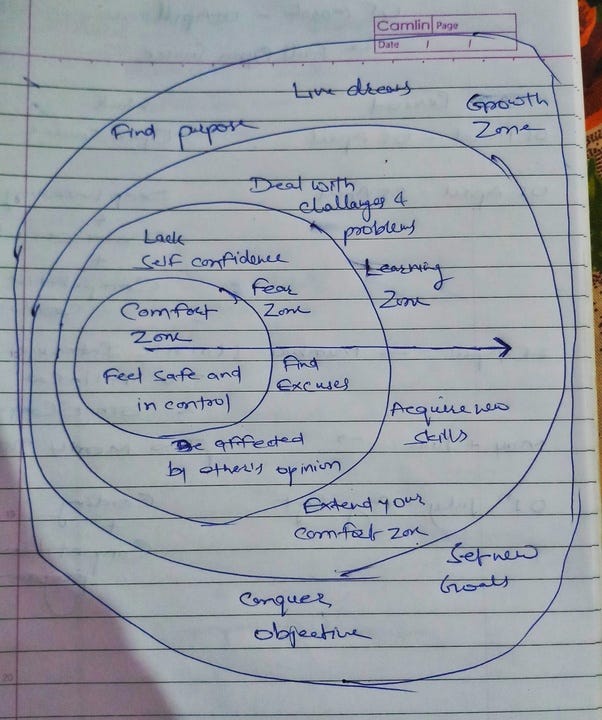 Camlin Page
Date / /
Live dreams
Growth
Zone
Find purpose
Deal with
challanges &
problems
Lack
Self confidence
Learning
Zone
Fear
Zone
Comfort
Zone
Feel safe and
in control
Find
Excuses
Acquire new
skills
Be affected
by other's opinion
Extend your
comfort zone
Set new
Goals
Conquer
objective